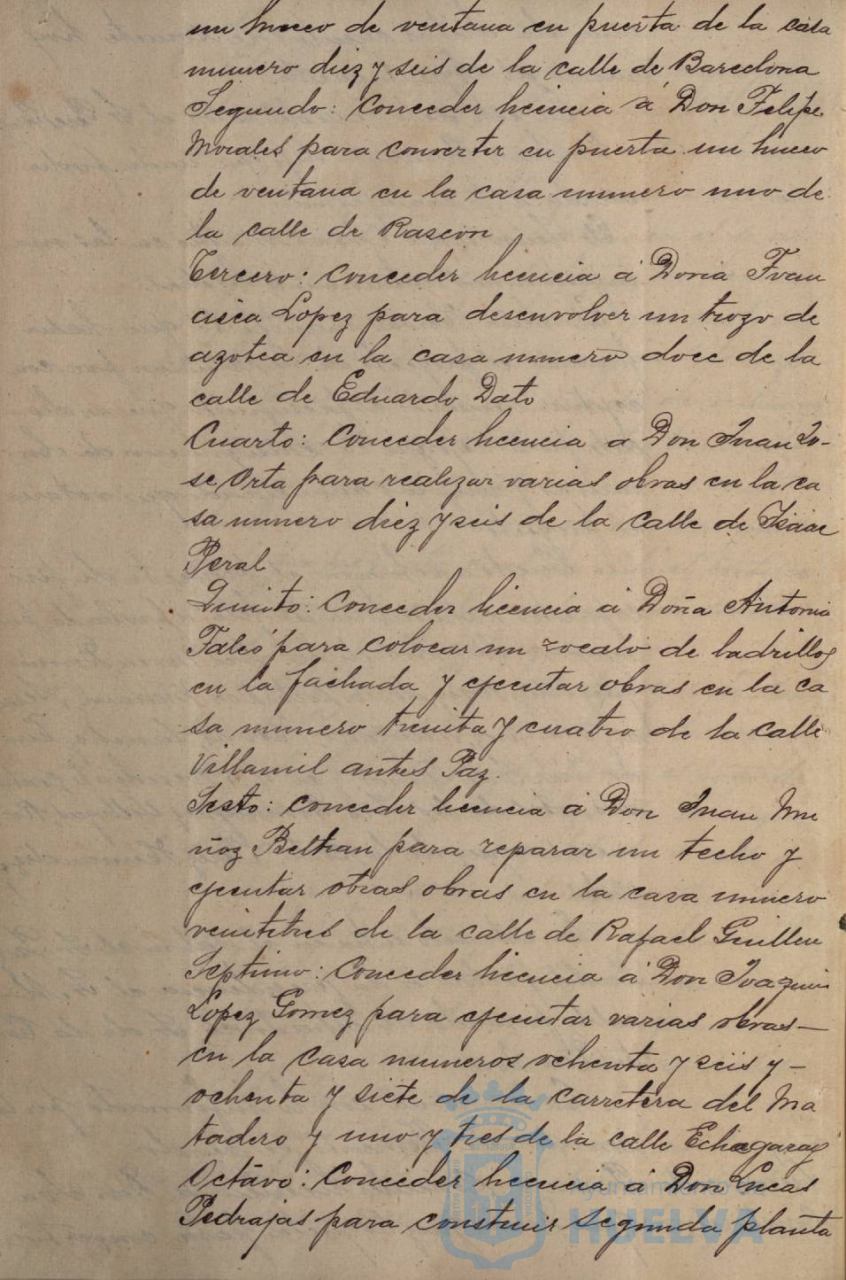 un hueco de ventana en puerta de la casa
numero diez y seis de la calle de Barcelona
Segundo: conceder licencia á Don Felipe
Morales para converter en puerta un hueco
de ventana en la casa numero uno de
la calle de Rascon
Tercero: conceder licencia á Doña Fran
cisca Lopez para desenvolver un trozo de
azotea en la casa numero doce de la
calle de Eduardo Dato
Cuarto: conceder licencia a Don Juan Jo-
se Orta para realizar varias obras en la ca
sa numero diez y seis de la calle de Isaac
Peral
Quinto: conceder licencia á Doña Antonia
Falcó para colocar un zocalo de ladrillos
en la fachada y ejecutar obras en la ca
sa numero treinta y cuatro de la calle
Villamil antes Paz.
Sesto: conceder licencia á Don Juan Mu
ñoz Beltran para reparar un techo y
ejecutar otras obras en la casa numero
veintitres de la calle de Rafael Guillen
Septimo: conceder licencia á Don Joaquin
Lopez Gomez para ejecutar varias obras—
en la casa numeros ochenta y seis y—
ochenta y siete de la carretera del Ma
tadero y uno y tres de la calle Echegaray
Octavo: conceder licencia á Don Lucas
Pedrajas para construir segunda planta
Ayuntamiento
HUELVA